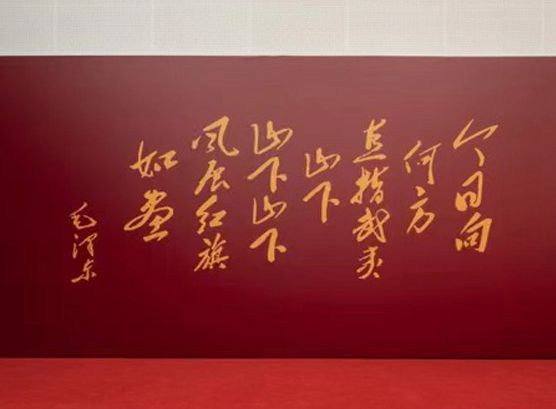 今日向
何方
直指武夷
山下
山下山下
风展红旗
如画
毛泽东